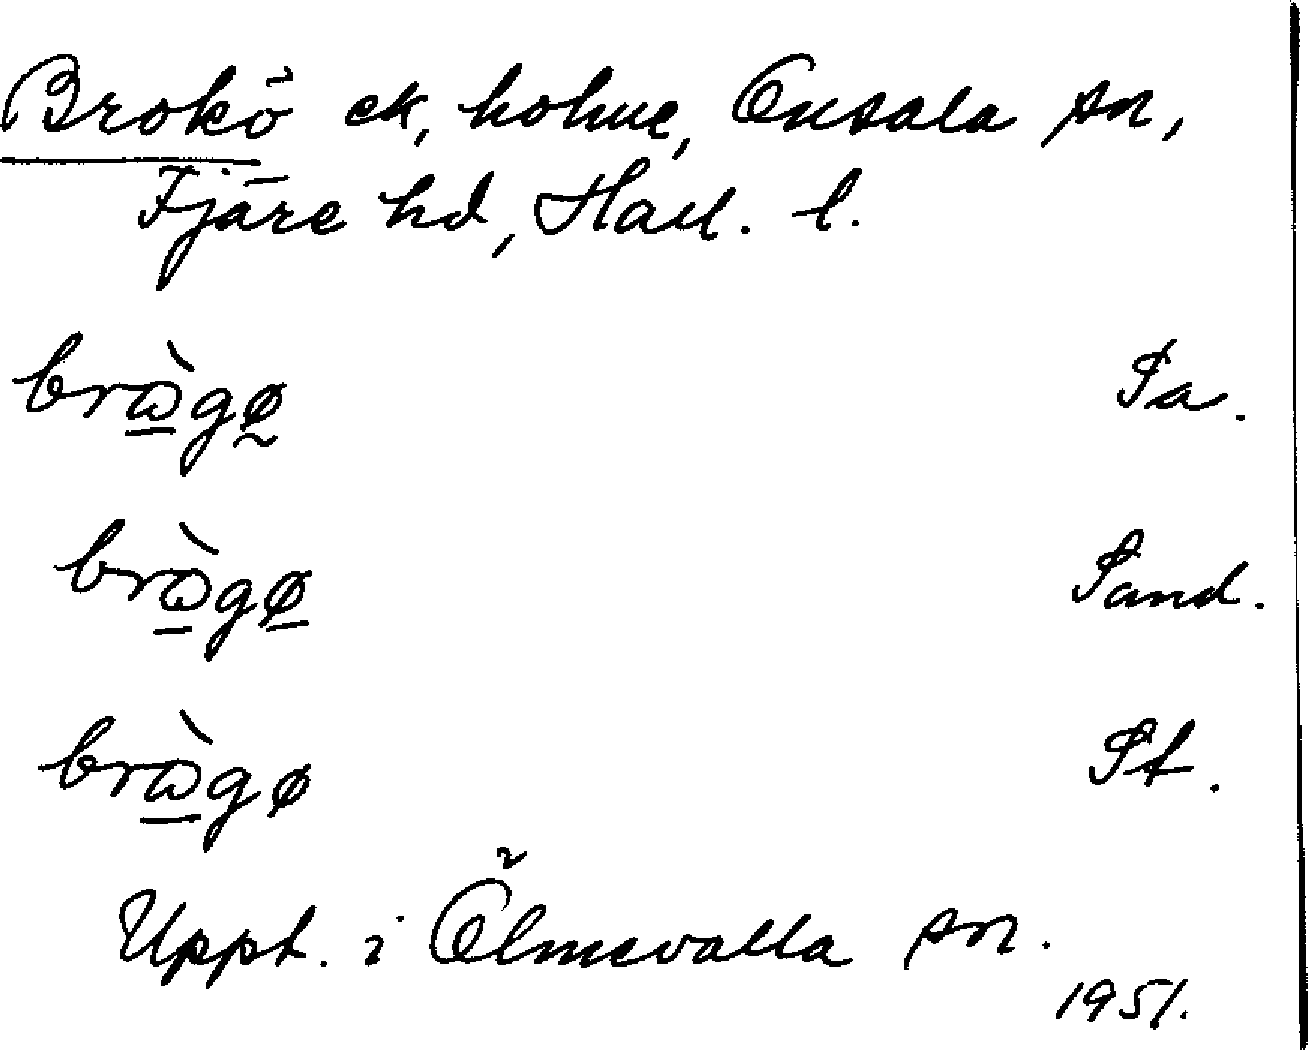 Brokö ek, holme, Onsala sn,
Fjäre hd, Hall. l.
brὼgø Sa.
brὼgø Sand.
brὼgø St.
Uppt. i Ölmevalla sn.
1951.